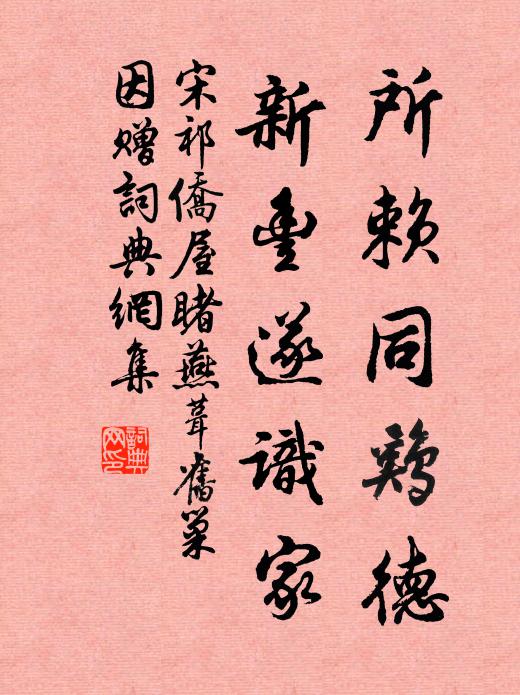 所赖同鸡德
新丰遂識家
宋祁僑屋睹燕葺舊巢
因贈詞典網集
詞典
网印